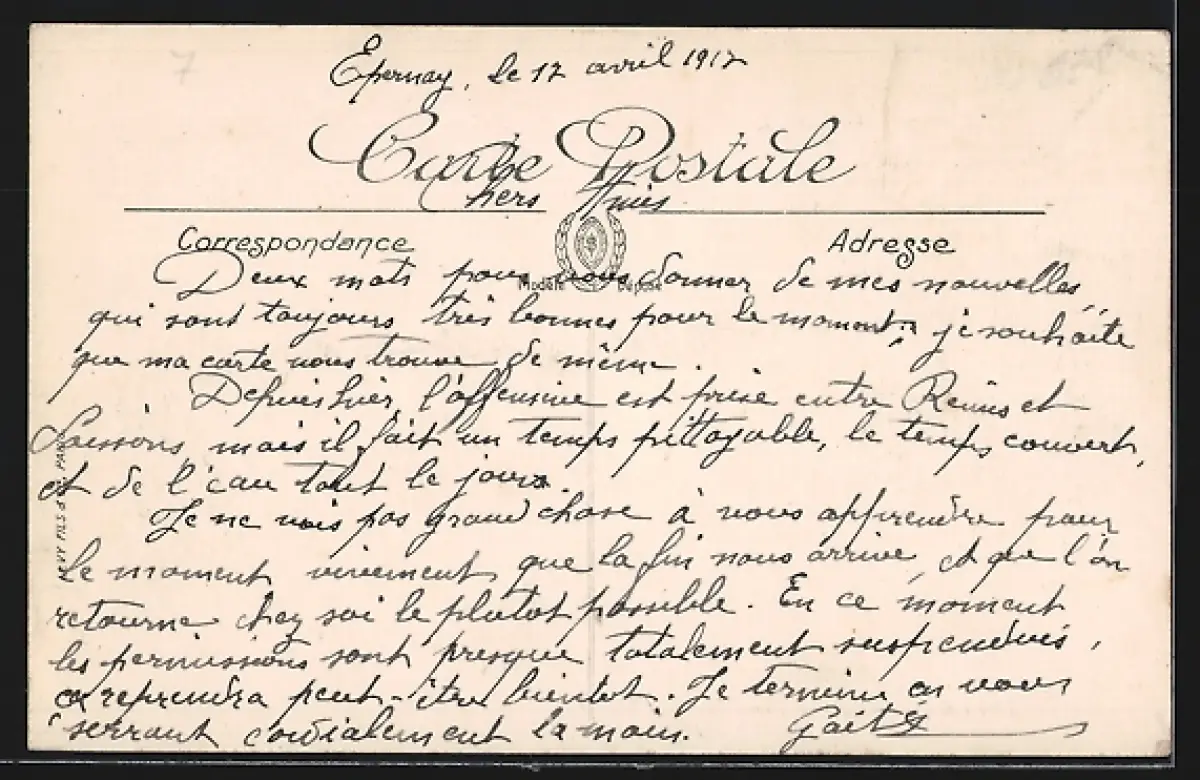 7
Épernay, le 17 avril 1917
Carte Postale
Chers Amis
Correspondance
Adresse
Modèle Déposé
Deux mots pour vous donner de mes nouvelles,
qui sont toujours très bonnes pour le moment, je souhaite
que ma carte vous trouve de même.
Depuis hier, l'offensive est prise entre Reims et
Soissons, mais il fait un temps pittoyable, le temps couvert,
et de l'eau tout le jours.
Je ne vois pas grand chose à vous apprendre pour
le moment, vivement que la fin nous arrive, et que l'on
retourne chez soi le plutot possible. En ce moment
les permissions sont presque totalement suspendues,
ça reprendra peut-être bientot. Je termine en vous
serrant cordialement la main.
LEVY FILS &